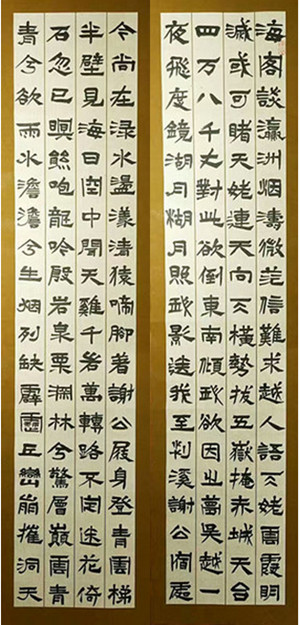 海客談瀛洲烟濤微茫信難求越人語天姥雲霞明
滅或可睹天姥連天向天橫勢拔五嶽掩赤城天台
四万八千丈對此欲倒東南傾我欲因之夢吳越一
夜飛度鏡湖月湖月照我影送我至剡溪謝公宿處
今尚在渌水盪漾清猿啼腳著謝公屐身登青雲梯
半壁見海日空中聞天雞千岩萬轉路不定迷花倚
石忽已暝熊咆龍吟殷岩泉栗深林兮驚層巔雲青
青兮欲雨水澹澹兮生烟列缺霹靂丘巒崩摧洞天